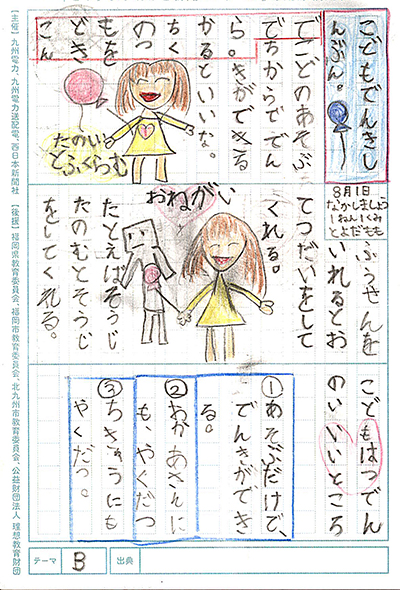 こどもでんきし
んぶん。
8月1日
なかしましょう
1ねん1くみ
とよだもも
でこどのあそぶ
でちからででん
ら。きができる
かるといいな。
ちく
のつ
もを
どき
こん
たのしい
とふくらむ
ふうせんを
いれるとお
てつだいをして
くれる。
おねがい
たとえばそうじ
たのむとそうじ
をしてくれる。
こどもはつでん
のいいところ
①あそぶだけで、
でんきができ
る。
②おかあさんに
も、やくだつ
③ちきゅうにも
やくだつ。
テーマ B 出典
【主催】九州電力、九州電力送配電、西日本新聞社 【後援】福岡県教育委員会、福岡市教育委員会、北九州市教育委員会、公益財団法人 理想教育財団